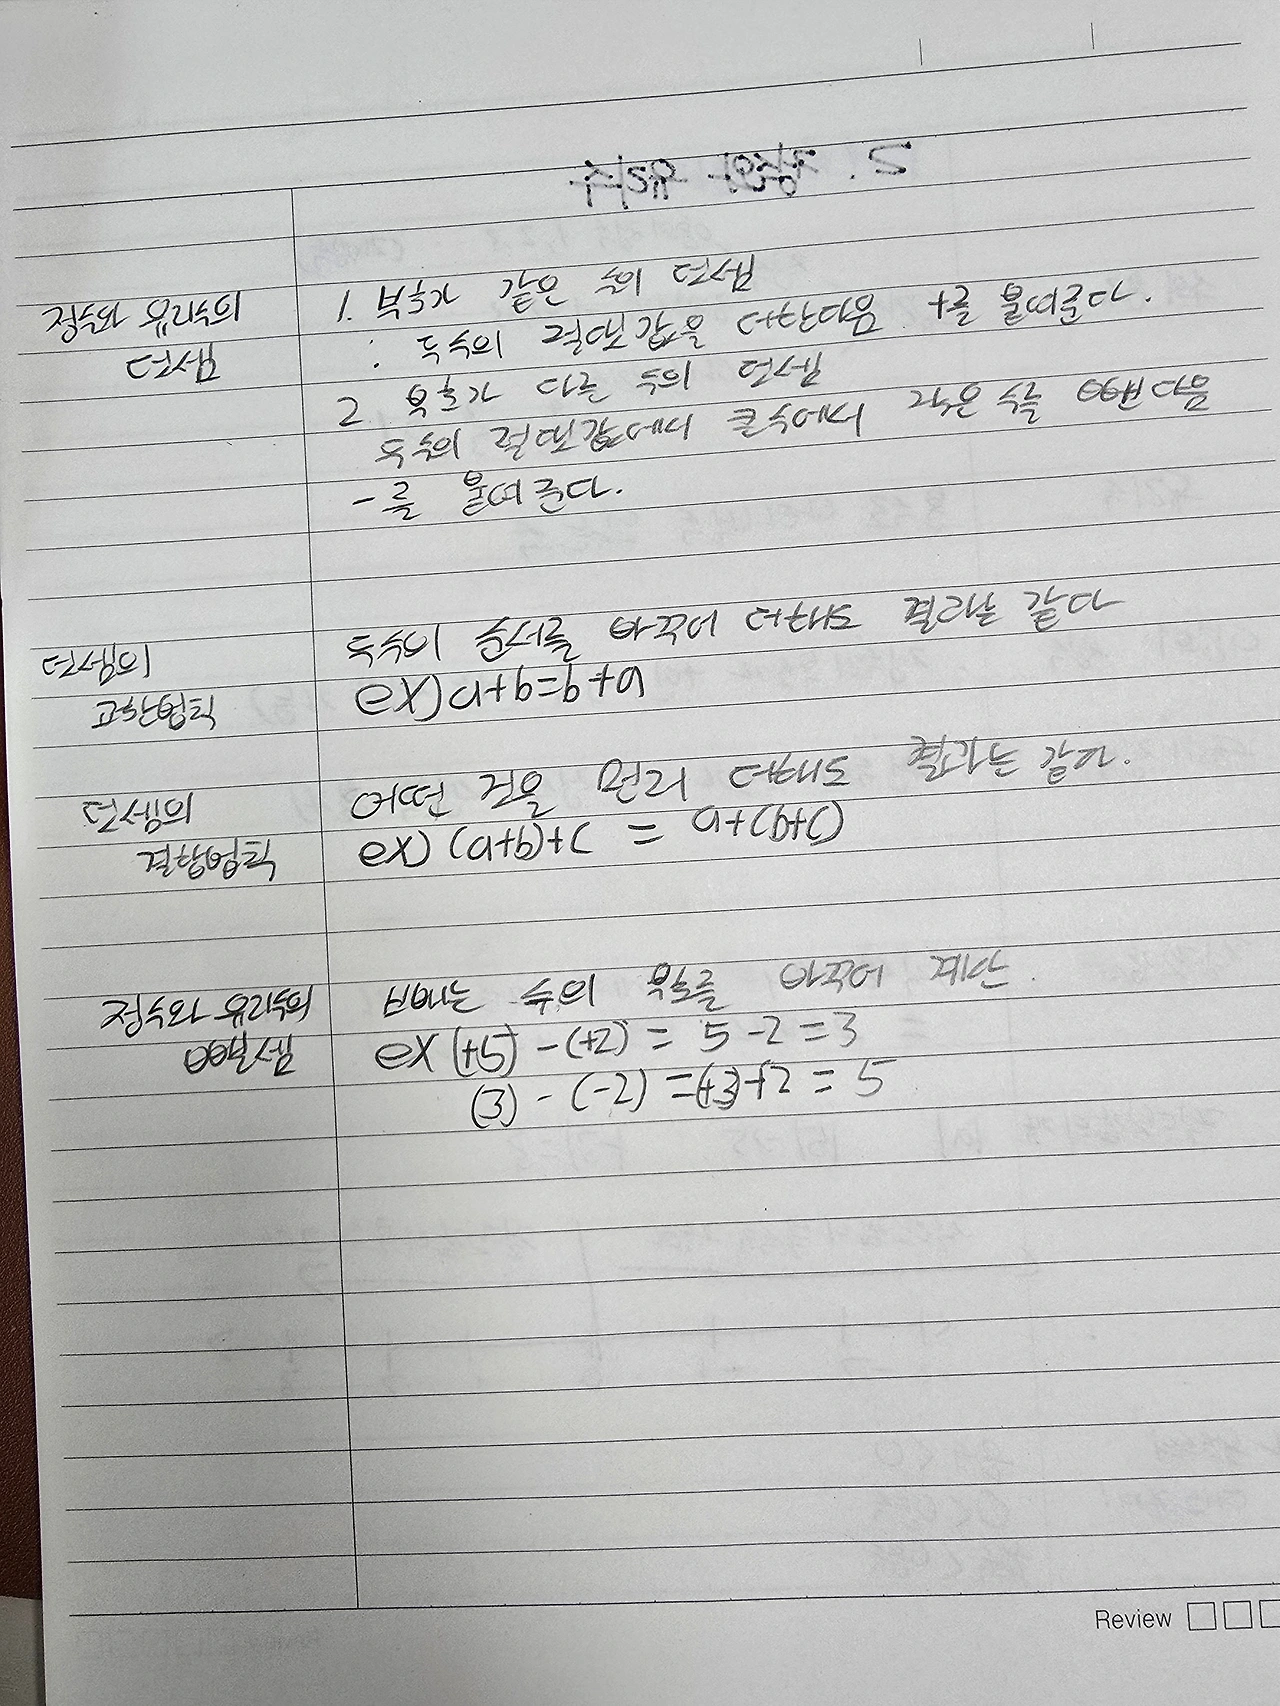 정수와 유리수의 덧셈
1. 부호가 같은 수의 덧셈
: 두수의 절댓값을 더한다음 +를 붙여준다.
2. 부호가 다른 두의 덧셈
두수의 절댓값에서 큰수에서 작은 수를 뺀다음
-를 붙여준다.
덧셈의 교환법칙
두수의 순서를 바꾸어 더해도 결과는 같다
ex) a+b=b+a
덧셈의 결합법칙
어떤 것을 먼저 더해도 결과는 같다.
ex) (a+b)+c = a+(b+c)
정수와 유리수의 뺄셈
빼는 수의 부호를 바꾸어 계산.
ex (+5) - (+2) = 5 - 2 = 3
(3) - (-2) = (+3)+2 = 5
Review